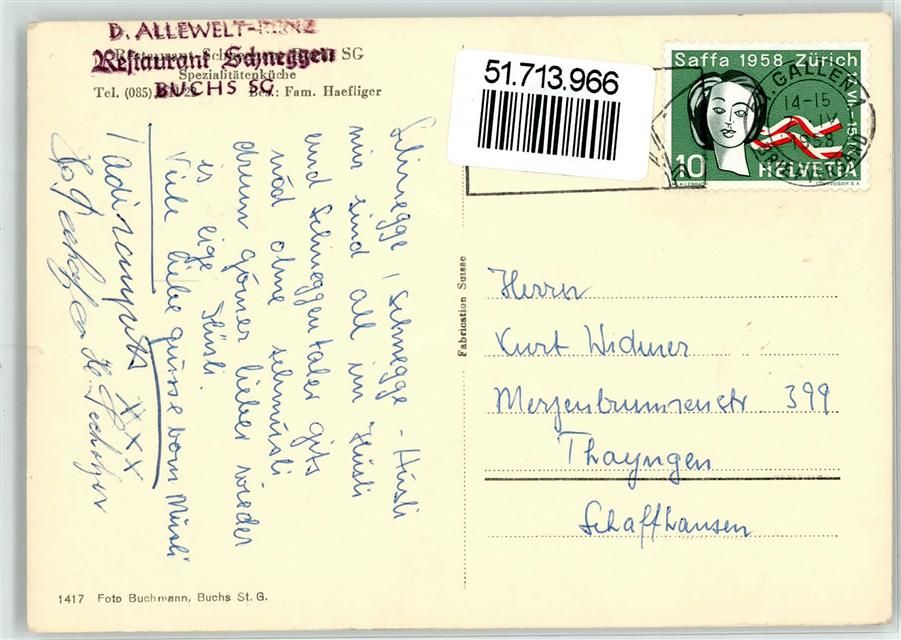 D. ALLEWELT-HINZ
Restaurant Schneggen SG
Restaurant Schneggen
Spezialitätenküche
BUCHS SG
Tel. (085) Bes.: Fam. Haefliger
51.713.966
Saffa 1958 Zürich
10 HELVETIA
COURVOISIER S.A.
ST. GALLEN 1
14-15
1958
BRIEFVERSAND
Schnegge, Schnegge - Hüsli
mir sind all im Hüsli
und Schneggentaler gits
nöd ohne schmüsli
drum gömer lieber wieder
is eige Hüsli.
Viele liebe grüsse vom Müsli
xxx
Fabrication Suisse
Herrn
Kurt Widmer
Merzenbrunnenstr. 399
Thayngen
Schaffhausen
1417 Foto Buchmann, Buchs St. G.